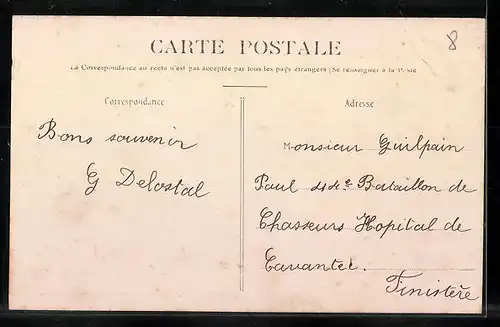 8
CARTE POSTALE
La Correspondance au recto n'est pas acceptée par tous les pays étrangers (Se renseigner à la Poste
Correspondance
Adresse
Bons souvenir
G Delostal
Monsieur Guilpain
Paul 44e Bataillon de
Chasseurs Hopital de
Cavantec.
Finistère